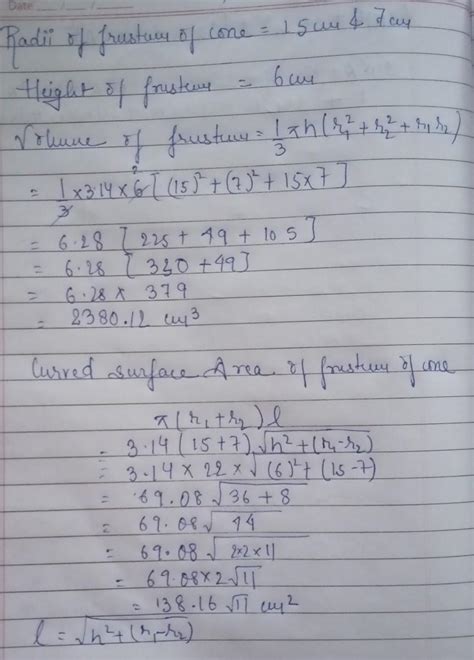 Date / /
Radii of frustum of cone = 15cm & 7cm
Height of frustum = 6cm
Volume of frustum = 1/3 πh(r₁²+r₂²+r₁r₂)
= 1/3 ×3.14×6 2 [(15)²+(7)²+15×7]
= 6.28 [225 + 49 + 105]
= 6.28 [330 +49]
= 6.28 × 379
= 2380.12 cm³
Curved surface Area of frustum of cone
π(r₁+r₂)l
= 3.14 (15+7) √h²+(r₁-r₂)
= 3.14 × 22 × √(6)²+(15-7)
= 69.08 √36 + 8
= 69.08 √44
= 69.08 √2×2×11
= 69.08×2 √11
= 138.16 √11 cm²
l = √h²+(r₁-r₂)